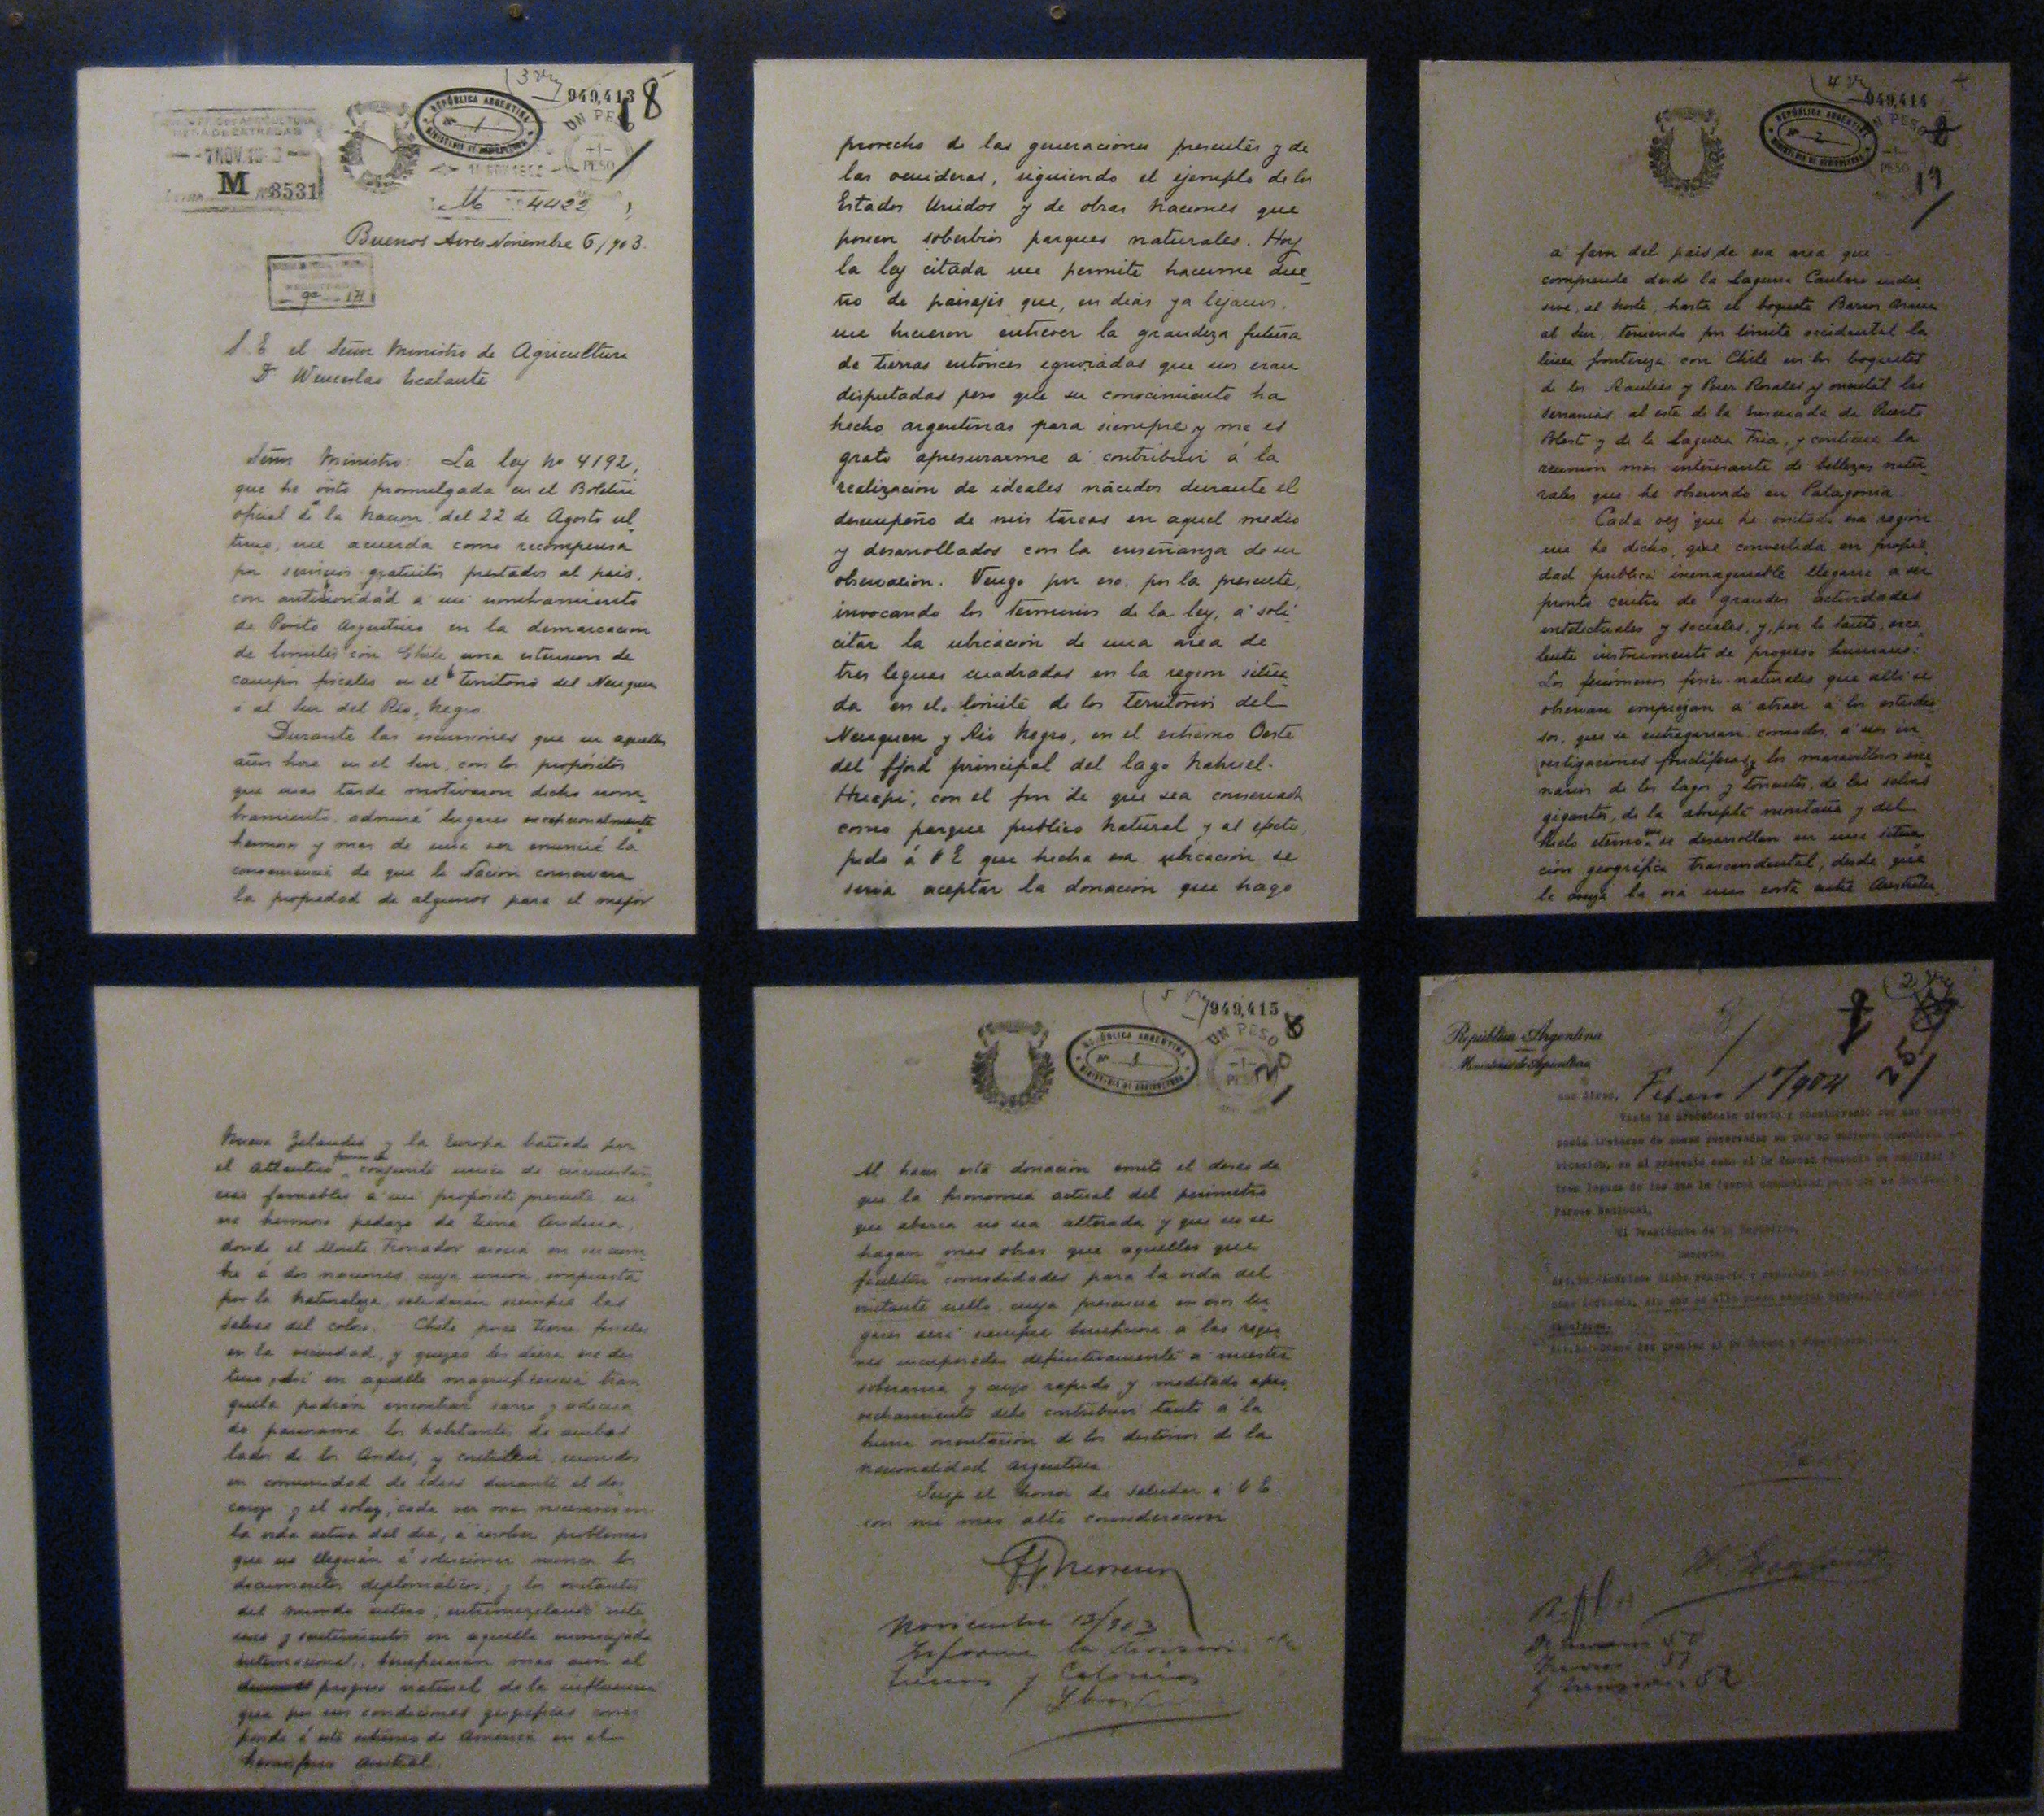 949,413
18
UN PESO
REPÚBLICA ARGENTINA
Nº 1
MINISTERIO DE AGRICULTURA
MESA DE ENTRADAS
-7 NOV. 19
M Nº 3531
PESO
M 4422
Buenos Aires Noviembre 6/903.
S. E. el Señor Ministro de Agricultura
D Wenceslao Escalante
Señor Ministro: La ley Nº 4192,
que he visto promulgada en el Boletin
oficial de la Nacion del 22 de Agosto ul
timo, me acuerda como recompensa
por servicios gratuitos prestados al pais,
con anterioridad a mi nombramiento
de Perito Argentino en la demarcacion
de limites con Chile una extension de
campos fiscales en el Territorio del Neuquen
ó al Sur del Rio Negro.
Durante las escursiones que en aquellos
años hice en el Sur, con los propósitos
que mas tarde motivaron dicho nom-
bramiento, admiré lugares excepcionalmente
hermosos y mas de una vez enuncié la
conveniencia de que la Nación conservara
la propiedad de algunos para el mejor
provecho de las generaciones presentes y de
las venideras, siguiendo el ejemplo de los
Estados Unidos y de otras naciones que
poseen soberbios parques naturales. Hoy
la ley citada me permite hacerme due-
ño de paisajes que, en dias ya lejanos,
me hicieron entrever la grandeza futura
de tierras entónces ignoradas que nos eran
disputadas pero que su conocimiento ha
hecho argentinas para siempre, y me es
grato apresurarme a contribuir á la
realización de ideales nacidos durante el
desempeño de mis tareas en aquel medio
y desarrollados con la enseñanza de su
observación. Vengo por eso, por la presente,
invocando los terminos de la ley, á soli
citar la ubicación de una area de
tres leguas cuadradas en la region situa
da en el limite de los territorios del
Neuquen y Rio Negro, en el extremo Oeste
del fjord principal del lago Nahuel-
Huapi, con el fin de que sea conservada
como parque publico natural y al efecto,
pido á V E que hecha esa ubicación se
sirva aceptar la donación que hago
949,414
UN PESO
REPÚBLICA ARGENTINA
Nº 2
MINISTERIO DE AGRICULTURA
PESO
19
á favor del pais de esa area que
comprende desde la Laguna Cantaro inclu
sive, al Norte, hasta el boquete Barros Arana
al Sur, teniendo por limite occidental la
linea fronteriza con Chile en los boquetes
de los Raulies y Perez Rosales y oriental las
serranias al este de la Ensenada de Puerto
Blest y de la Laguna Fria, y contiene la
reunion mas interesante de bellezas natu-
rales que he observado en Patagonia.
Cada vez que he visitado esa región
me he dicho que convertida en propie
dad publica inenagenable llegaria a ser
pronto centro de grandes actividades
intelectuales y sociales, y, por lo tanto, exce
lente instrumento de progreso humano.
Los fenómenos fisico-naturales que alli se
observan empiezan á atraer á los estudio-
sos, que se entregarian comodos á sus in-
vestigaciones fructíferas, y los maravillosos esce
narios de los lagos y torrentes, de las selvas
gigantes, de la abrupta montaña y del
hielo eterno que se desarrollan en una situa
ción geográfica trascendental, desde que
la cruza la via mas corta entre Australia,
Nueva Zelandia y la Europa bañada por
el Atlantico forman conjunto unico de circunstan-
cias favorables á mi propósito presente, en
ese hermoso pedazo de tierra andina,
donde el Monte Tronador asocia en su cum
bre á dos naciones, cuya union, impuesta
por la Naturaleza, saludaran siempre las
salvas del coloso. Chile posee tierras fiscales
en la vecindad, y quizas les diera ese des
tino. Asi en aquella magnificencia tran
quila podrán encontrar sano y adecua
do panorama los habitantes de ambos
lados de los Andes, y contribuir, reunidos
en comunidad de ideas durante el des
canso y el solaz, cada vez mas necesarios en
la vida activa del dia, á resolver problemas
que no llegarán á solucionar nunca los
documentos diplomáticos; y los visitantes
del mundo entero, entremezclando inte
reses y sentimientos en aquella encrucijada
internacional, beneficiarán mas aun el
progreso natural de la influencia
que por sus condiciones geográficas corres
ponde á este extremo de America en el
hemisferio austral.
949,415
UN PESO
REPÚBLICA ARGENTINA
Nº 3
MINISTERIO DE AGRICULTURA
PESO
20
Al hacer esta donación emito el deseo de
que la fisonomia actual del perímetro
que abarca no sea alterada y que no se
hagan mas obras que aquellas que
faciliten comodidades para la vida del
visitante culto, cuya presencia en esos lu
gares será siempre beneficiosa á las regio
nes incorporadas definitivamente a nuestra
soberania y cuyo rapido y meditado apro
vechamiento debe contribuir tanto a la
buena orientación de los destinos de la
nacionalidad argentina.
Tengo el honor de saludar a V E
con mi mas alta consideracion
F. P. Moreno
Noviembre 13/903
Informe la Division de
Tierras y Colonias
República Argentina
Ministerio de Agricultura
25
Buenos Aires, Febrero 1º/904
Parque Nacional,
El Presidente de la República,
Decreta:
W. Escalante